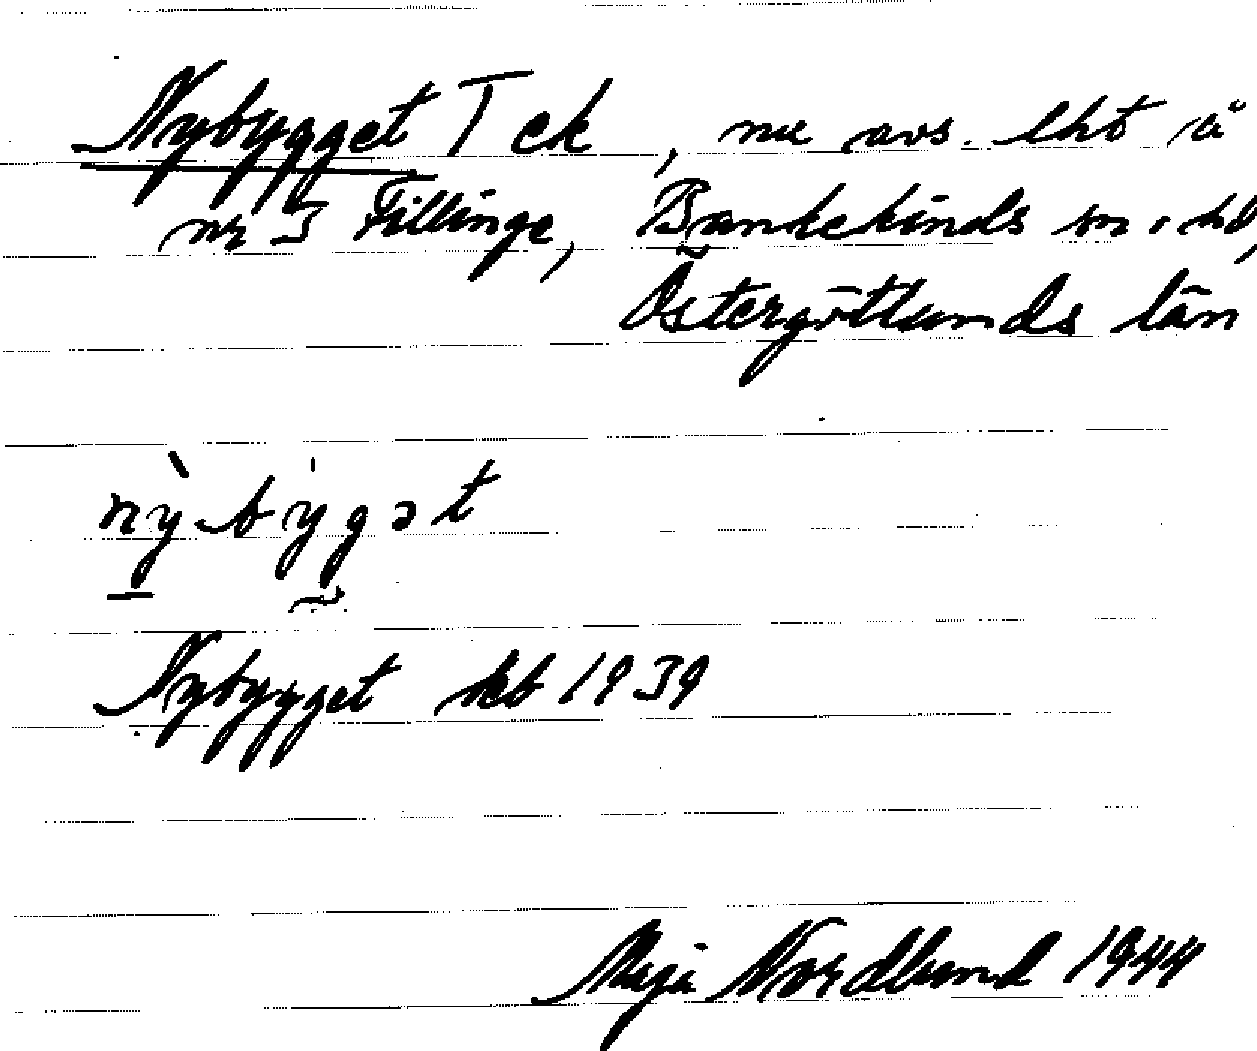 Nybygget T ek, nu avs. lht å
nr 3 Fillinge, Bankekinds sn o hd,
Östergötlands län
nỳbýgət
Nybygget ekb 1939
Maja Nordlund 1944